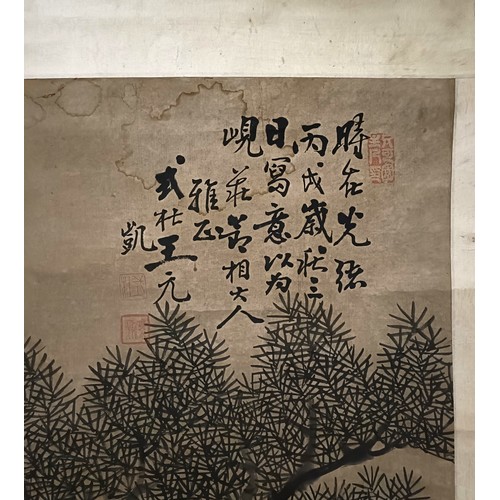 時在光緒
丙戌歲秋三
日寫意以为
峴莊節相大人
雅正
弍杜王元
凱